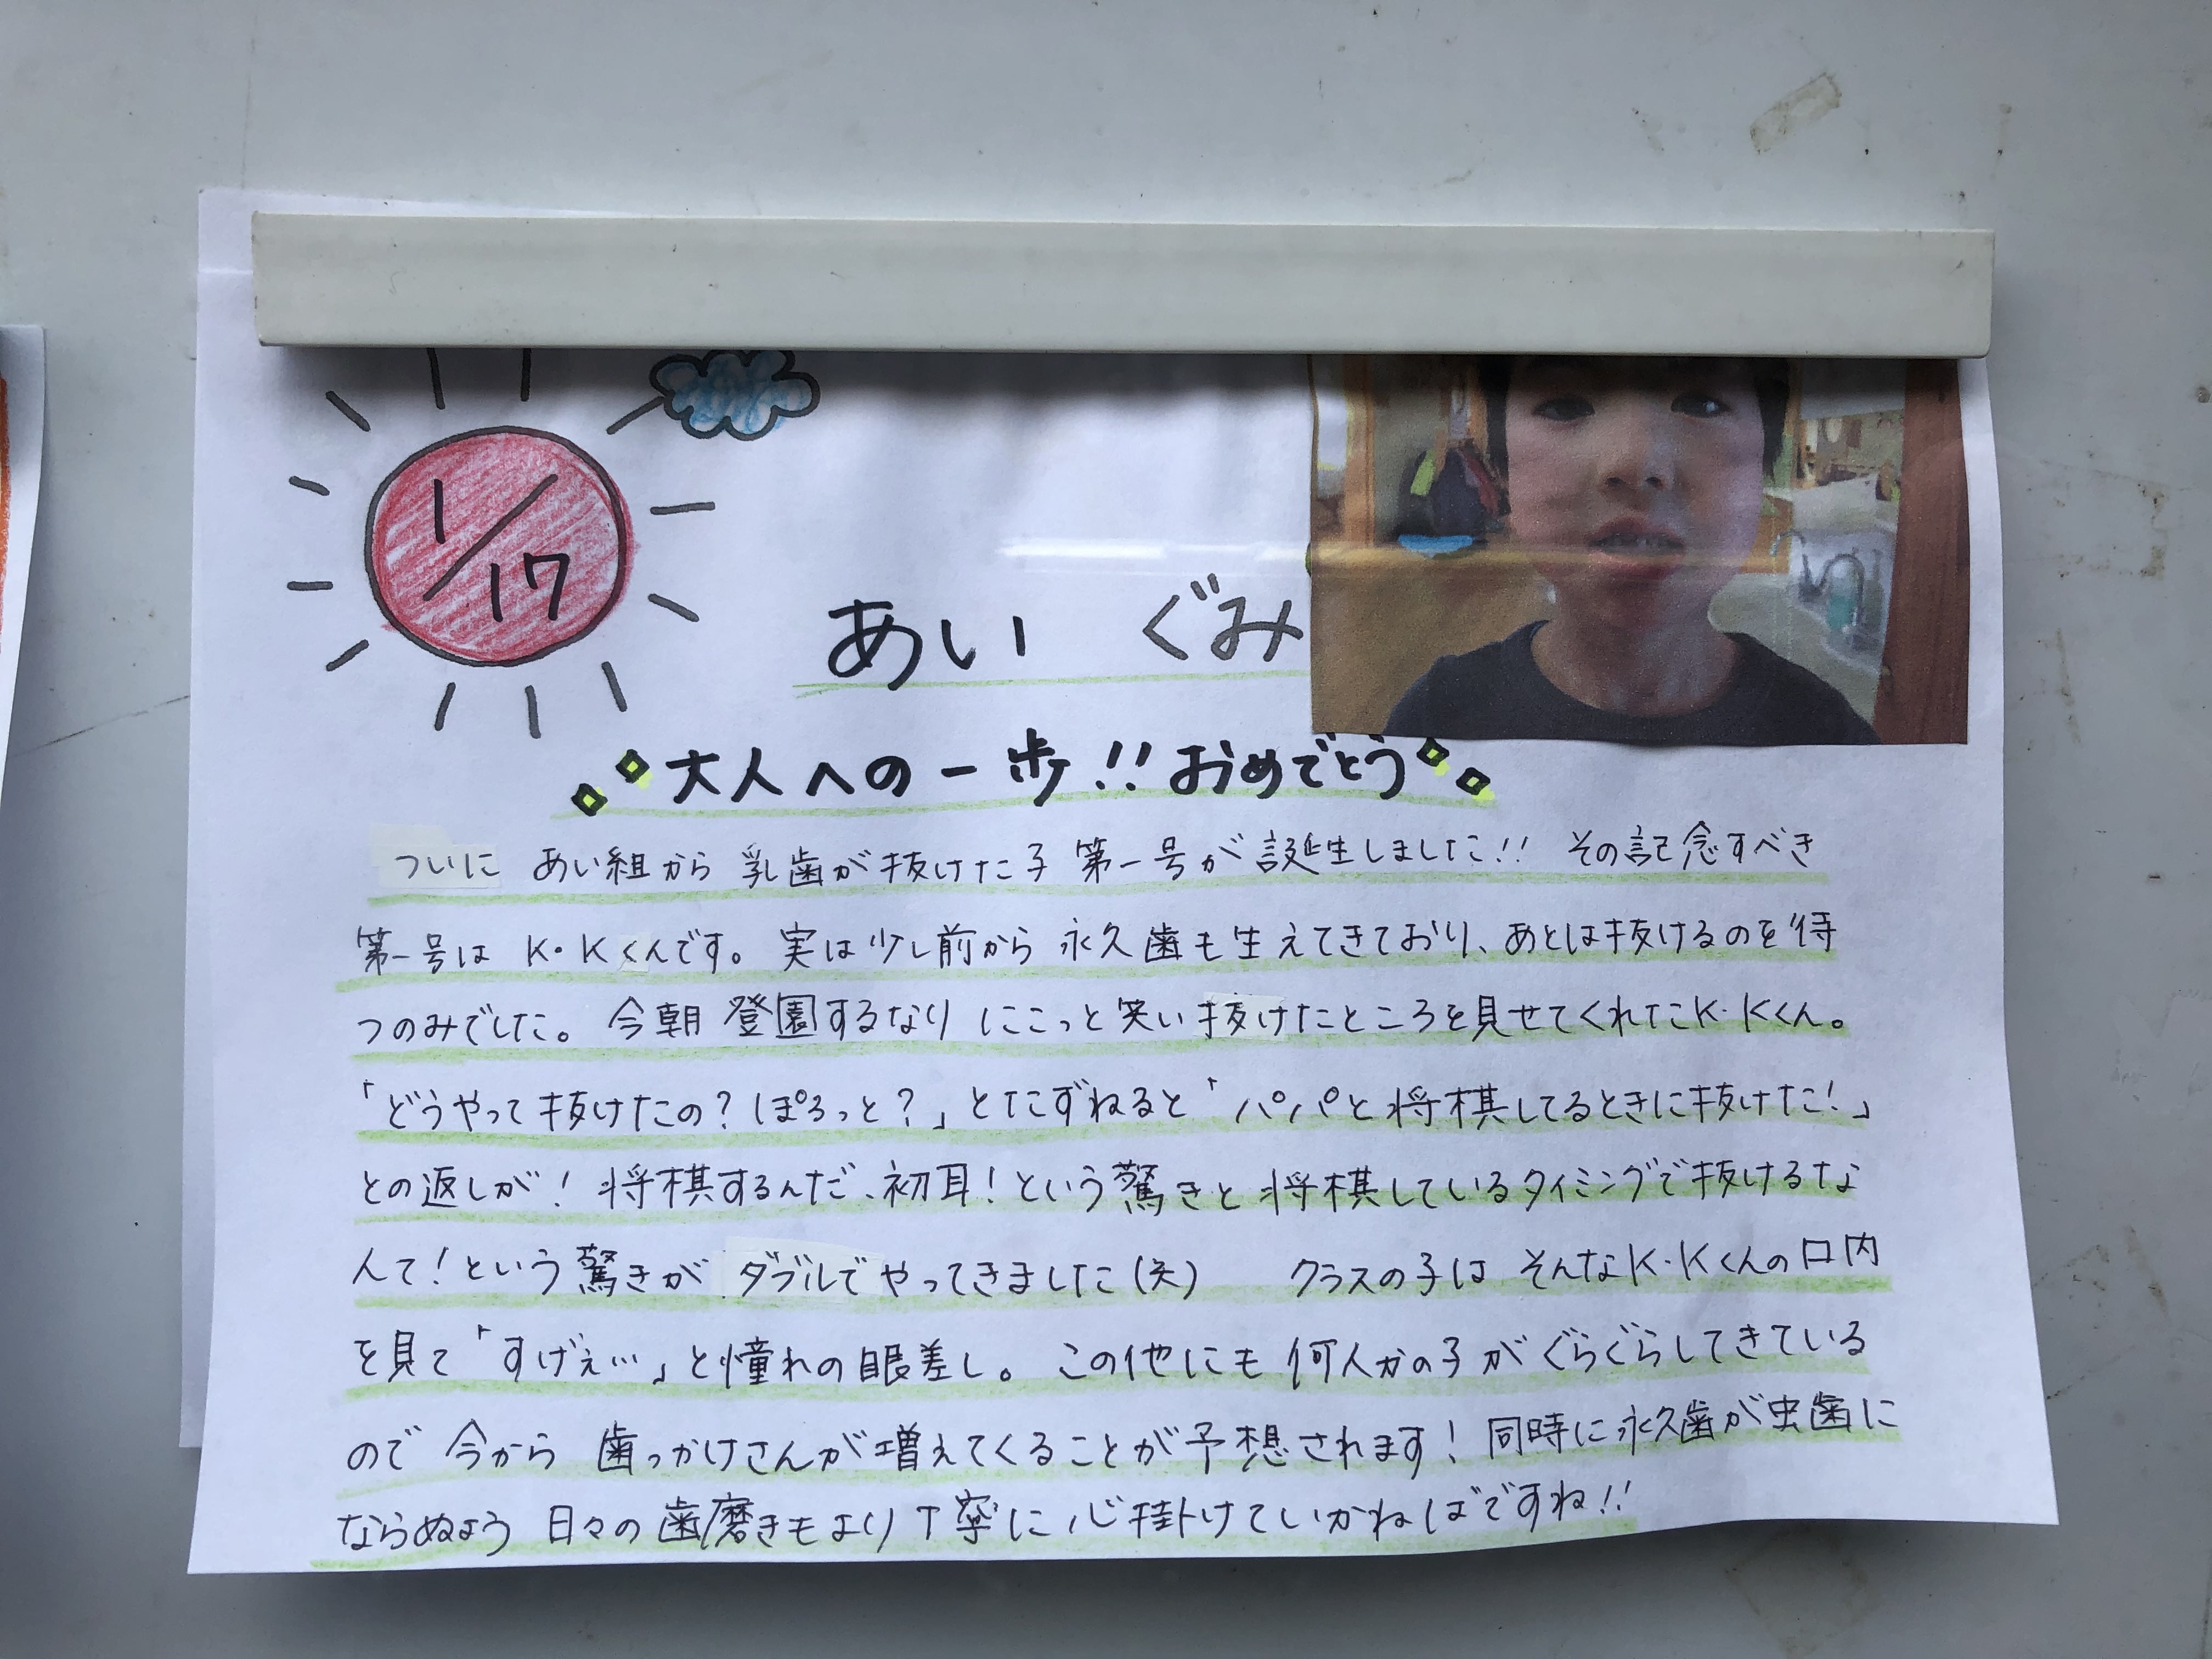 1/17
あい ぐみ
大人への一歩!! おめでとう
ついに あい組から 乳歯が抜けた子 第一号が誕生しました!! その記念すべき
第一号は K・Kくんです。実は少し前から 永久歯も生えてきており、あとは抜けるのを待
つのみでした。今朝 登園するなり にこっと笑い 抜けたところを見せてくれたK・Kくん。
「どうやって抜けたの?ぽろっと?」とたずねると「パパと将棋してるときに抜けた!」
との返しが! 将棋するんだ、初耳!という驚きと将棋しているタイミングで抜けるな
んて!という驚きが ダブルでやってきました(笑) クラスの子は そんなK・Kくんの口内
を見て「すげぇ…」と憧れの眼差し。この他にも 何人かの子がぐらぐらしてきている
ので 今から 歯っかけさんが増えてくることが予想されます! 同時に永久歯が虫歯に
ならぬよう 日々の歯磨きもより丁寧に心掛けていかねばですね!!